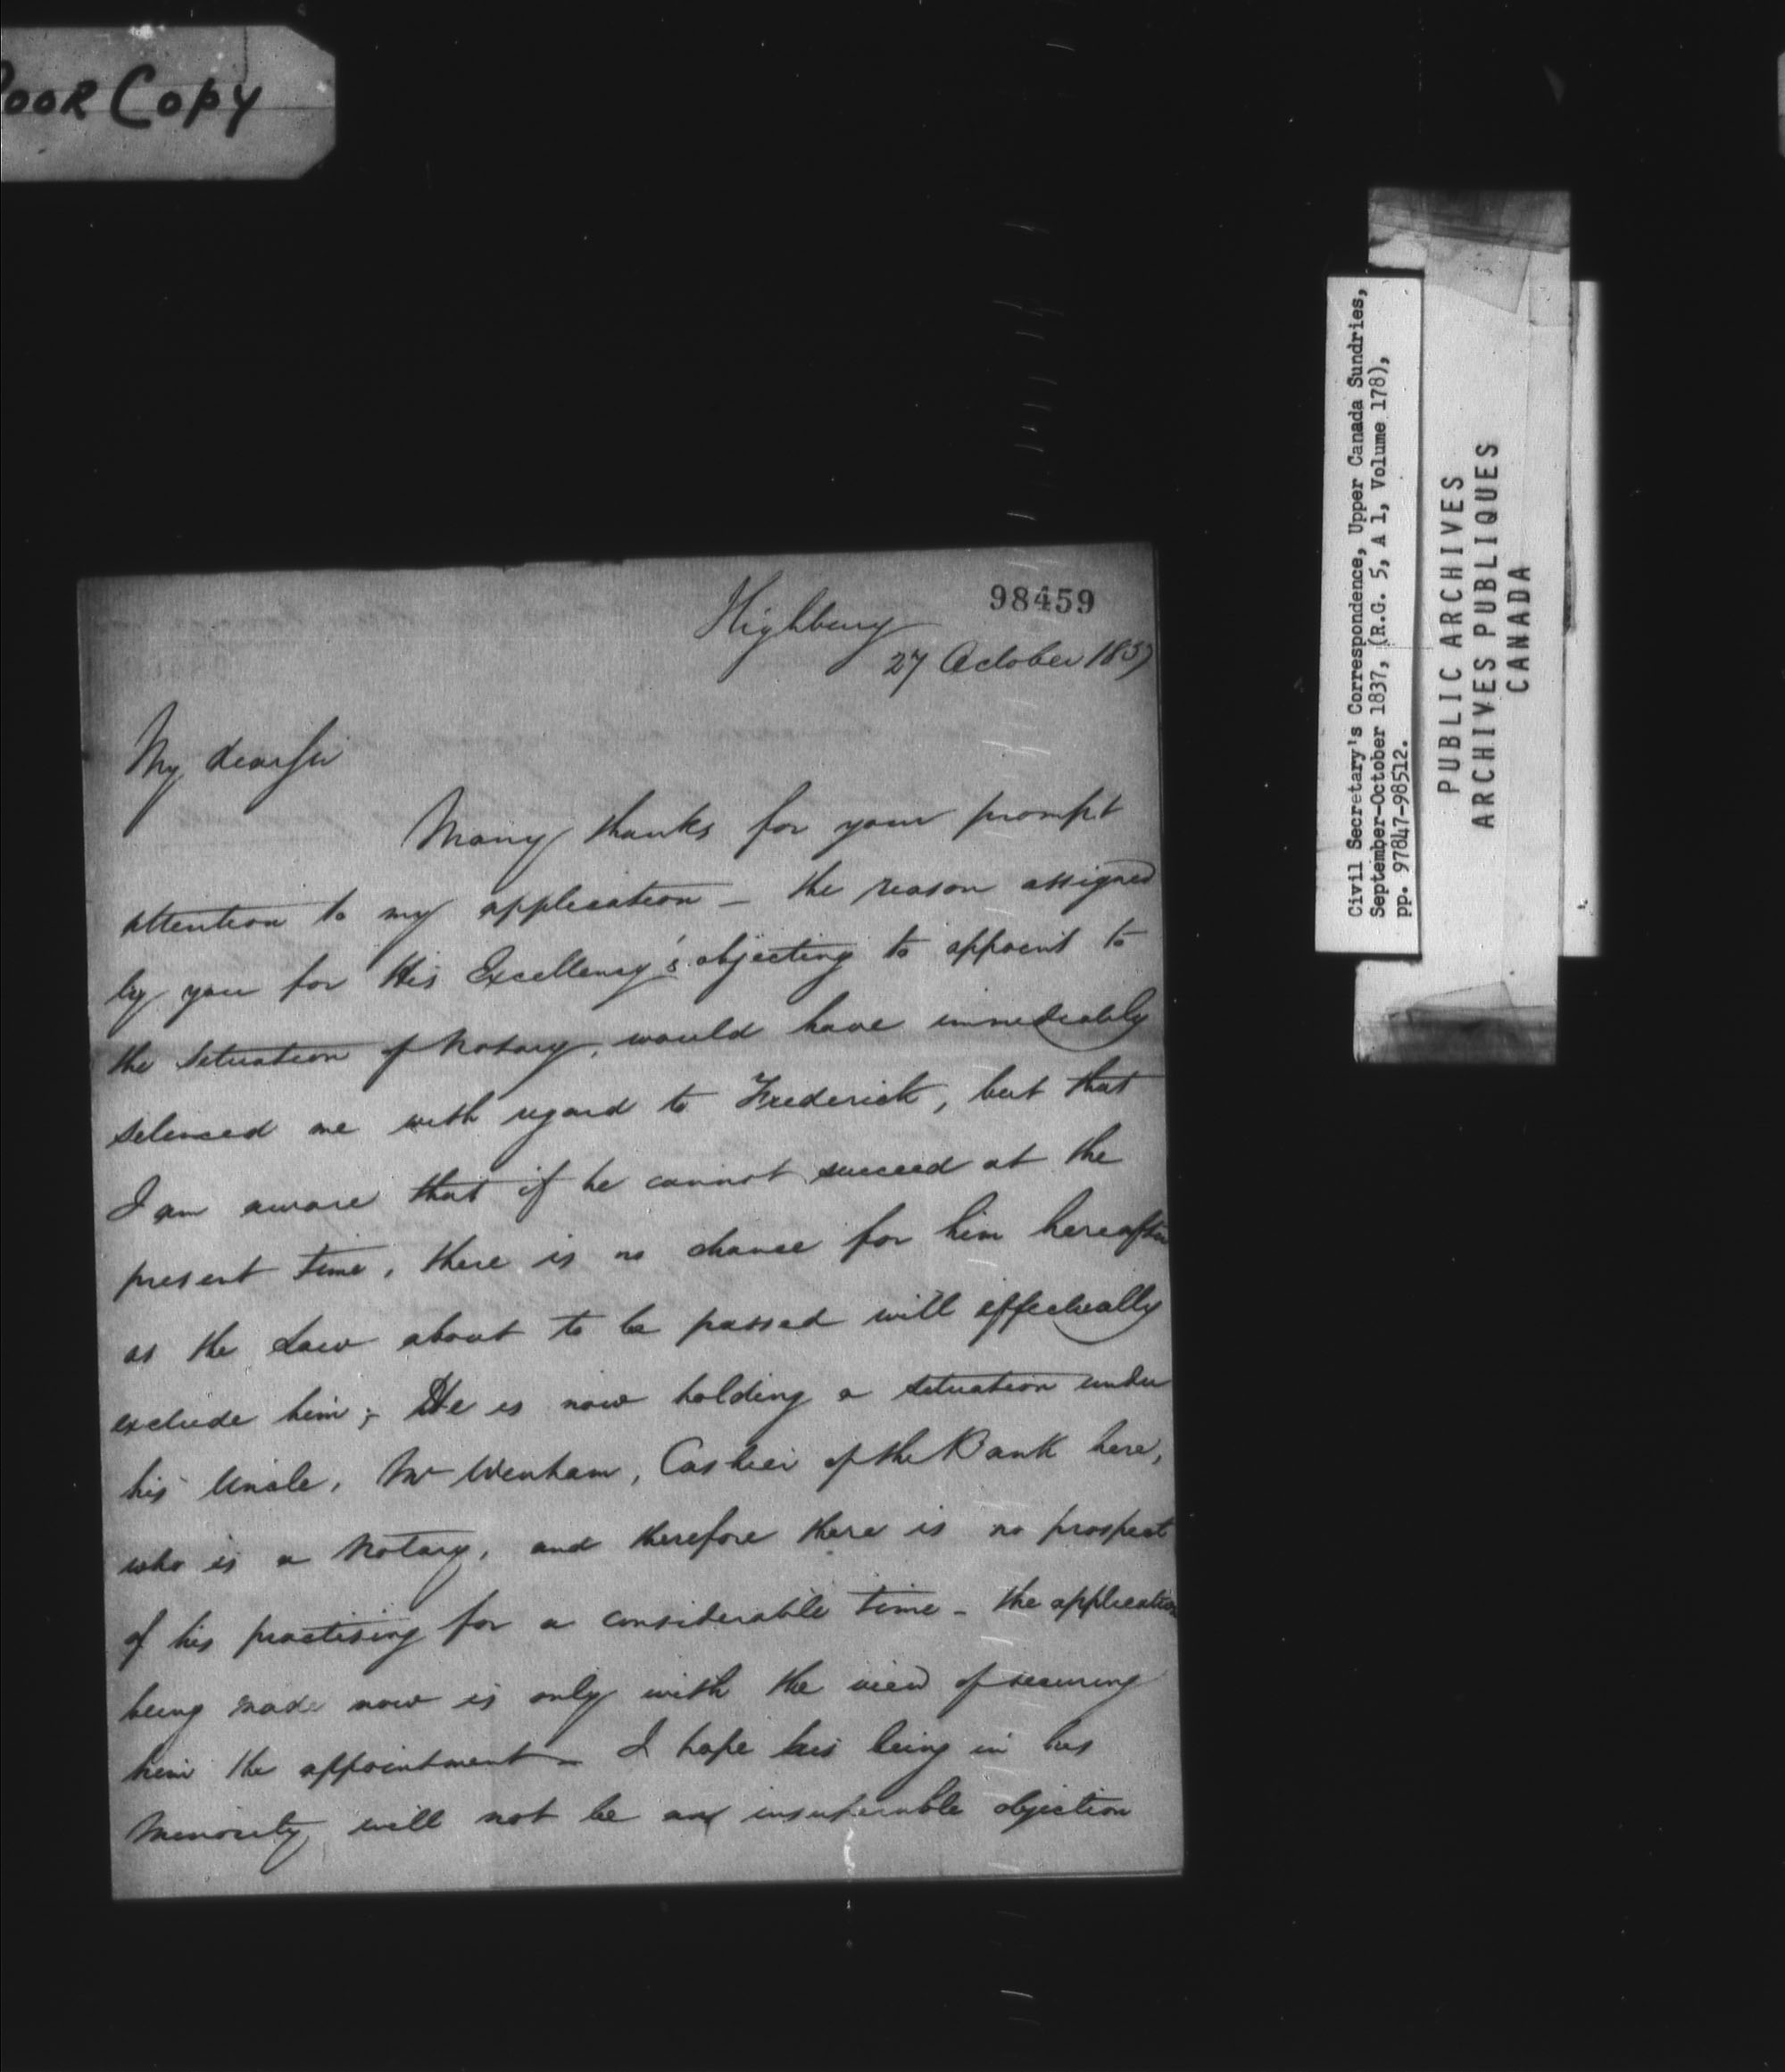 Poor Copy
98459
Highbury
27 October 1837
My dear Sir
Many thanks for your prompt
attention to my application – the reason assigned
by you for His Excellency's objecting to appoint to
the situation of Notary, would have immediately
silenced me with regard to Frederick, but that
I am aware that if he cannot succeed at the
present time, there is no chance for him hereafter
as the Law about to be passed will effectually
exclude him; He is now holding a situation under
his Uncle, Mr Wenham, Cashier of the Bank here,
who is a Notary, and therefore there is no prospect
of his practising for a considerable time – the application
being made now is only with the view of securing
him the appointment – I hope his being in his
Minority will not be an insuperable objection
Civil Secretary's Correspondence, Upper Canada Sundries,
September-October 1837, (R.G. 5, A 1, Volume 178),
pp. 97847-98512.
PUBLIC ARCHIVES
ARCHIVES PUBLIQUES
CANADA